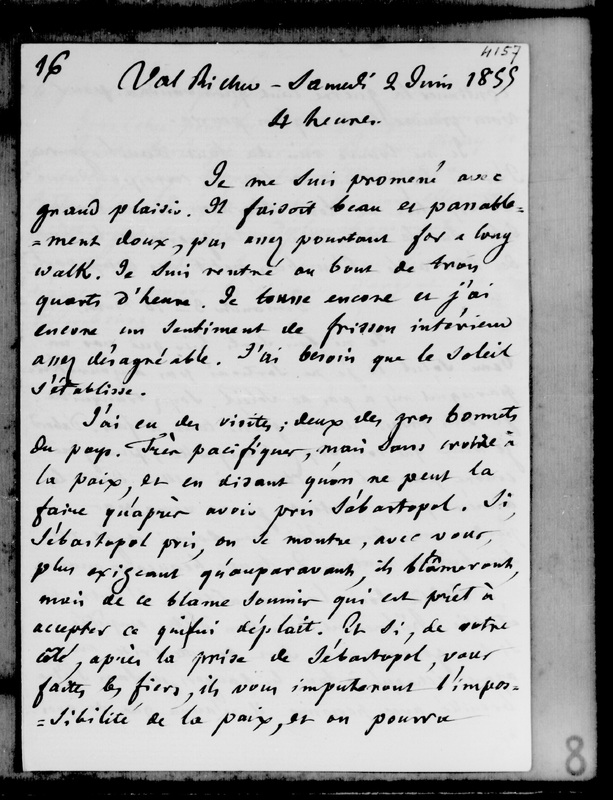 4157
16
Val Richer - Samedi 2 Juin 1855
4 heures.
Je me suis promené avec
grand plaisir. Il faisoit beau et passable=
=ment doux, pas assez pourtant for a long
walk. Je suis rentré au bout de trois
quarts d'heure. Je tousse encore et j'ai
encore un sentiment de frisson intérieur
assez désagréable. J'ai besoin que le soleil
s'établisse.
J'ai eu des visites ; deux des gros bonnets
du pays. Très pacifiques, mais sans croire à
la paix, et en disant qu'on ne peut la
faire qu'après avoir pris Sébastopol. Si,
Sébastopol pris, on se montre, avec vous,
plus exigeant qu'auparavant, ils blâmeront,
mais de ce blame soumis qui est prêt à
accepter ce qui lui déplaît. Et si, de votre
côté, après la prise de Sébastopol, vous
faites les fiers, ils vous imputeront l'impos=
=sibilité de la paix, et on pourra
8